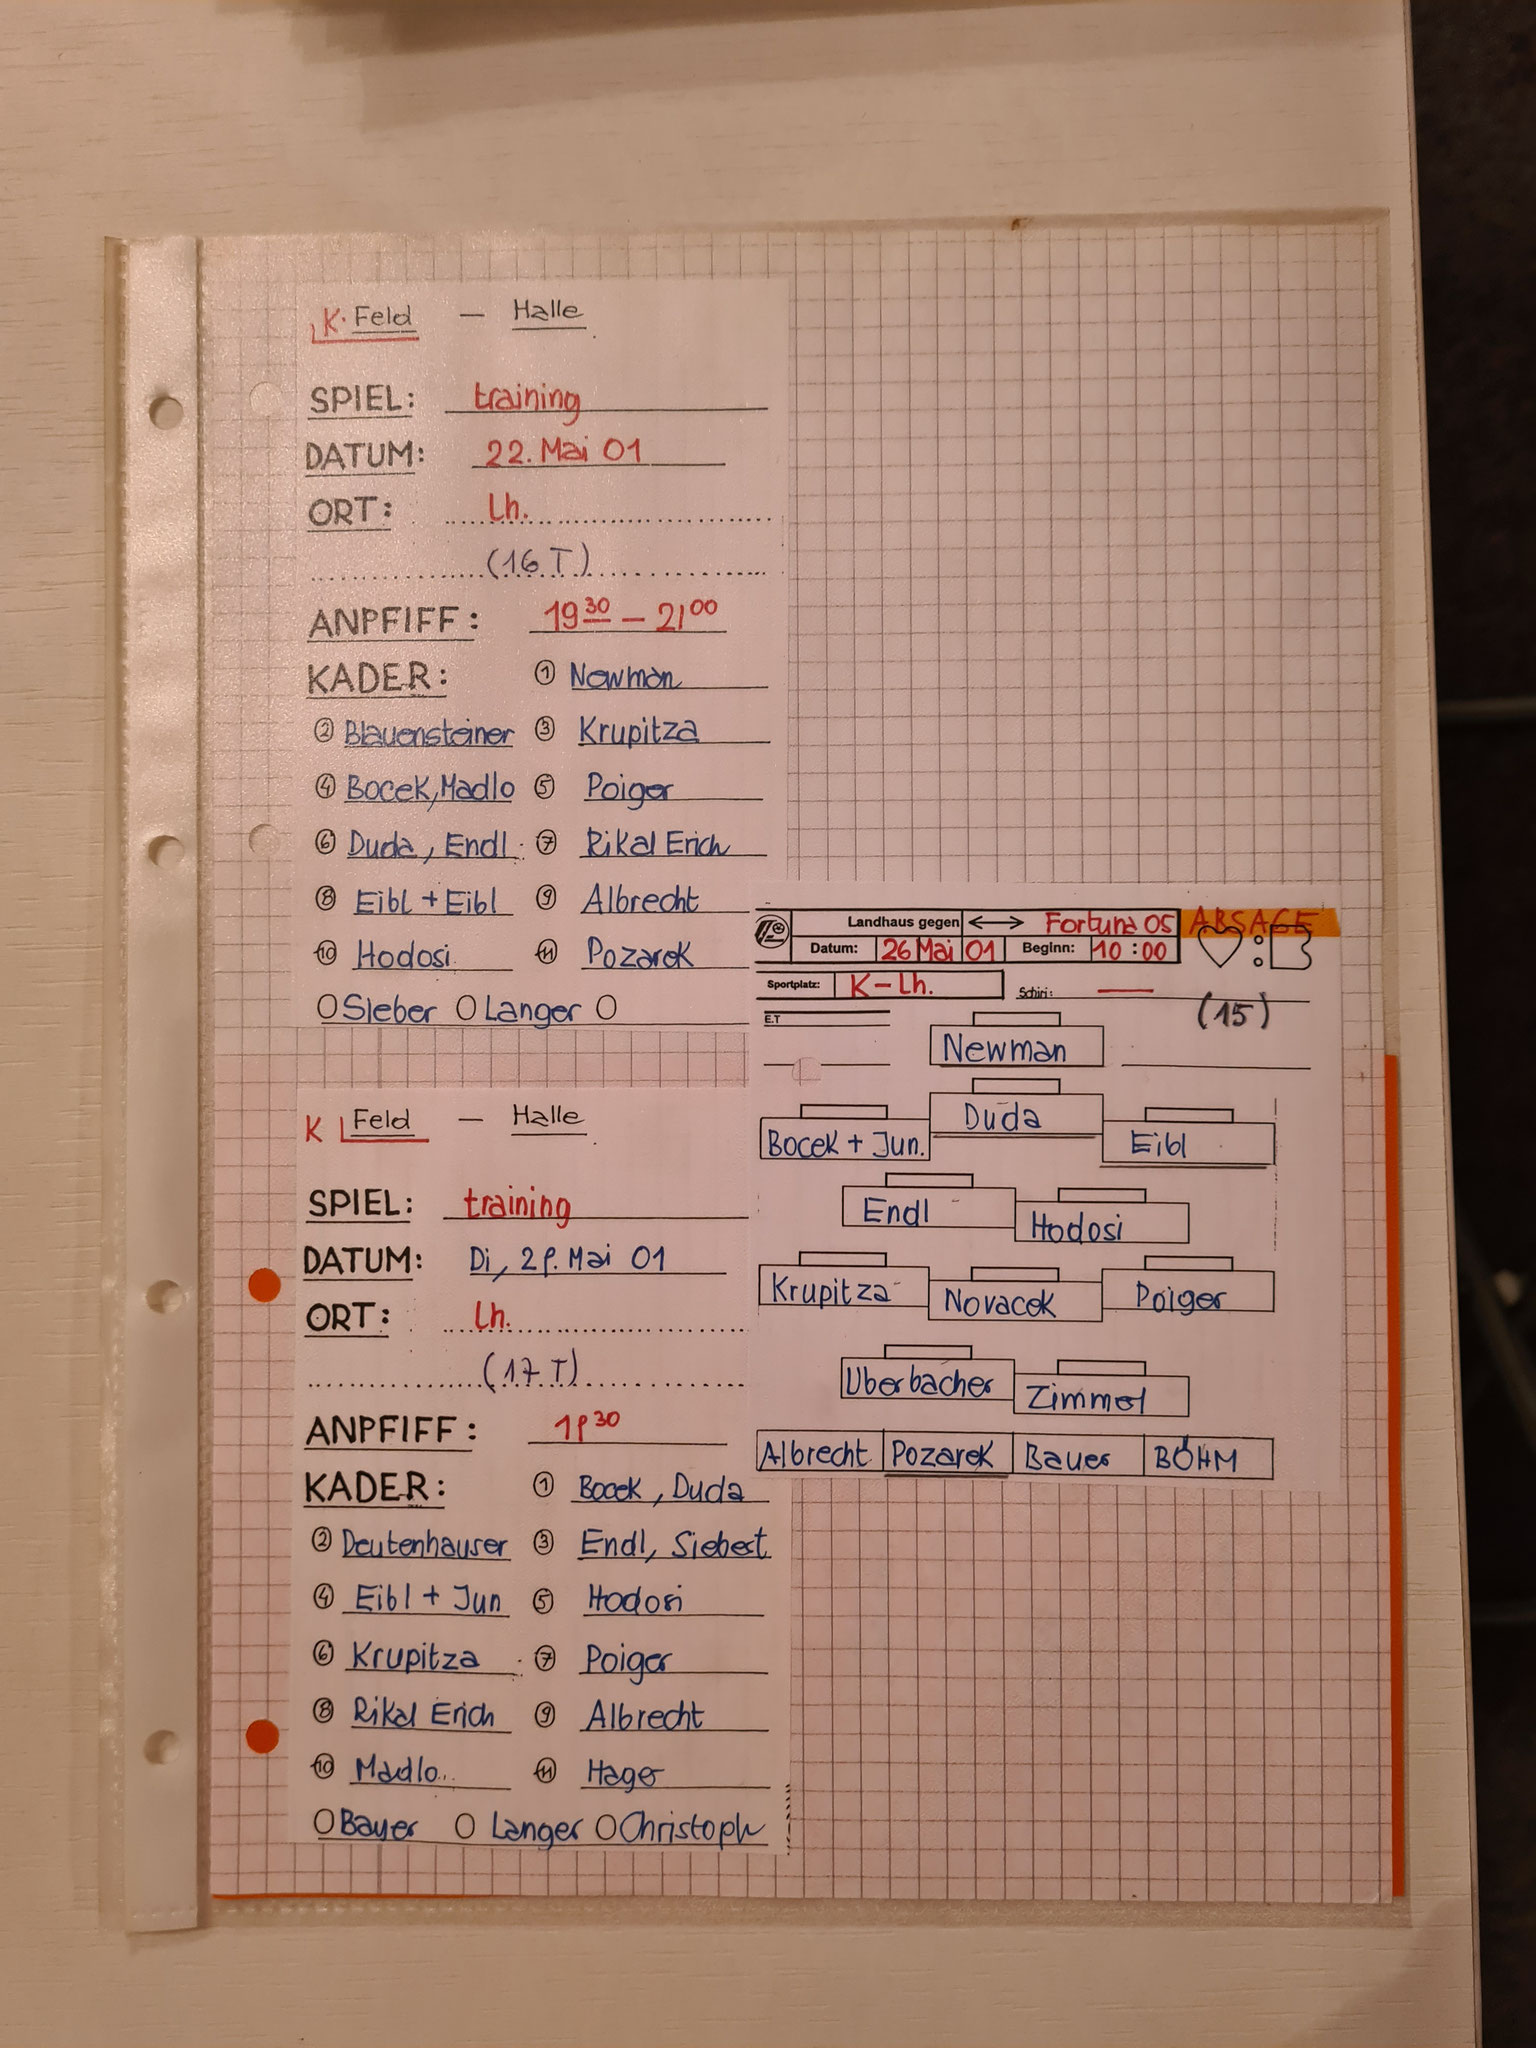 K. Feld — Halle
SPIEL: training
DATUM: 22. Mai 01
ORT: Lh.
(16 T)
ANPFIFF: 19 30 — 21 00
KADER: ① Newman
② Blauensteiner ③ Krupitza
④ Bocek, Madlo ⑤ Poiger
⑥ Duda, Endl ⑦ Rikal Erich
⑧ Eibl + Eibl ⑨ Albrecht
⑩ Hodosi ⑪ Pozarek
O Sieber O Langer O
Landhaus gegen ⟷ Fortuna 05 ABSAGE
Datum: 26 Mai 01 Beginn: 10:00 :
Sportplatz: K - Lh. Schiri: —
E.T (15)
Newman
Bocek + Jun. Duda Eibl
Endl Hodosi
Krupitza Novacek Poiger
Uberbacher Zimmel
Albrecht Pozarek Bauer BÖHM
K Feld — Halle
SPIEL: training
DATUM: Di, 29. Mai 01
ORT: Lh.
(17 T)
ANPFIFF: 19 30
KADER: ① Bocek, Duda
② Deutenhauser ③ Endl, Siebert
④ Eibl + Jun ⑤ Hodosi
⑥ Krupitza ⑦ Poiger
⑧ Rikal Erich ⑨ Albrecht
⑩ Madlo ⑪ Hager
O Bauer O Langer O Christoph